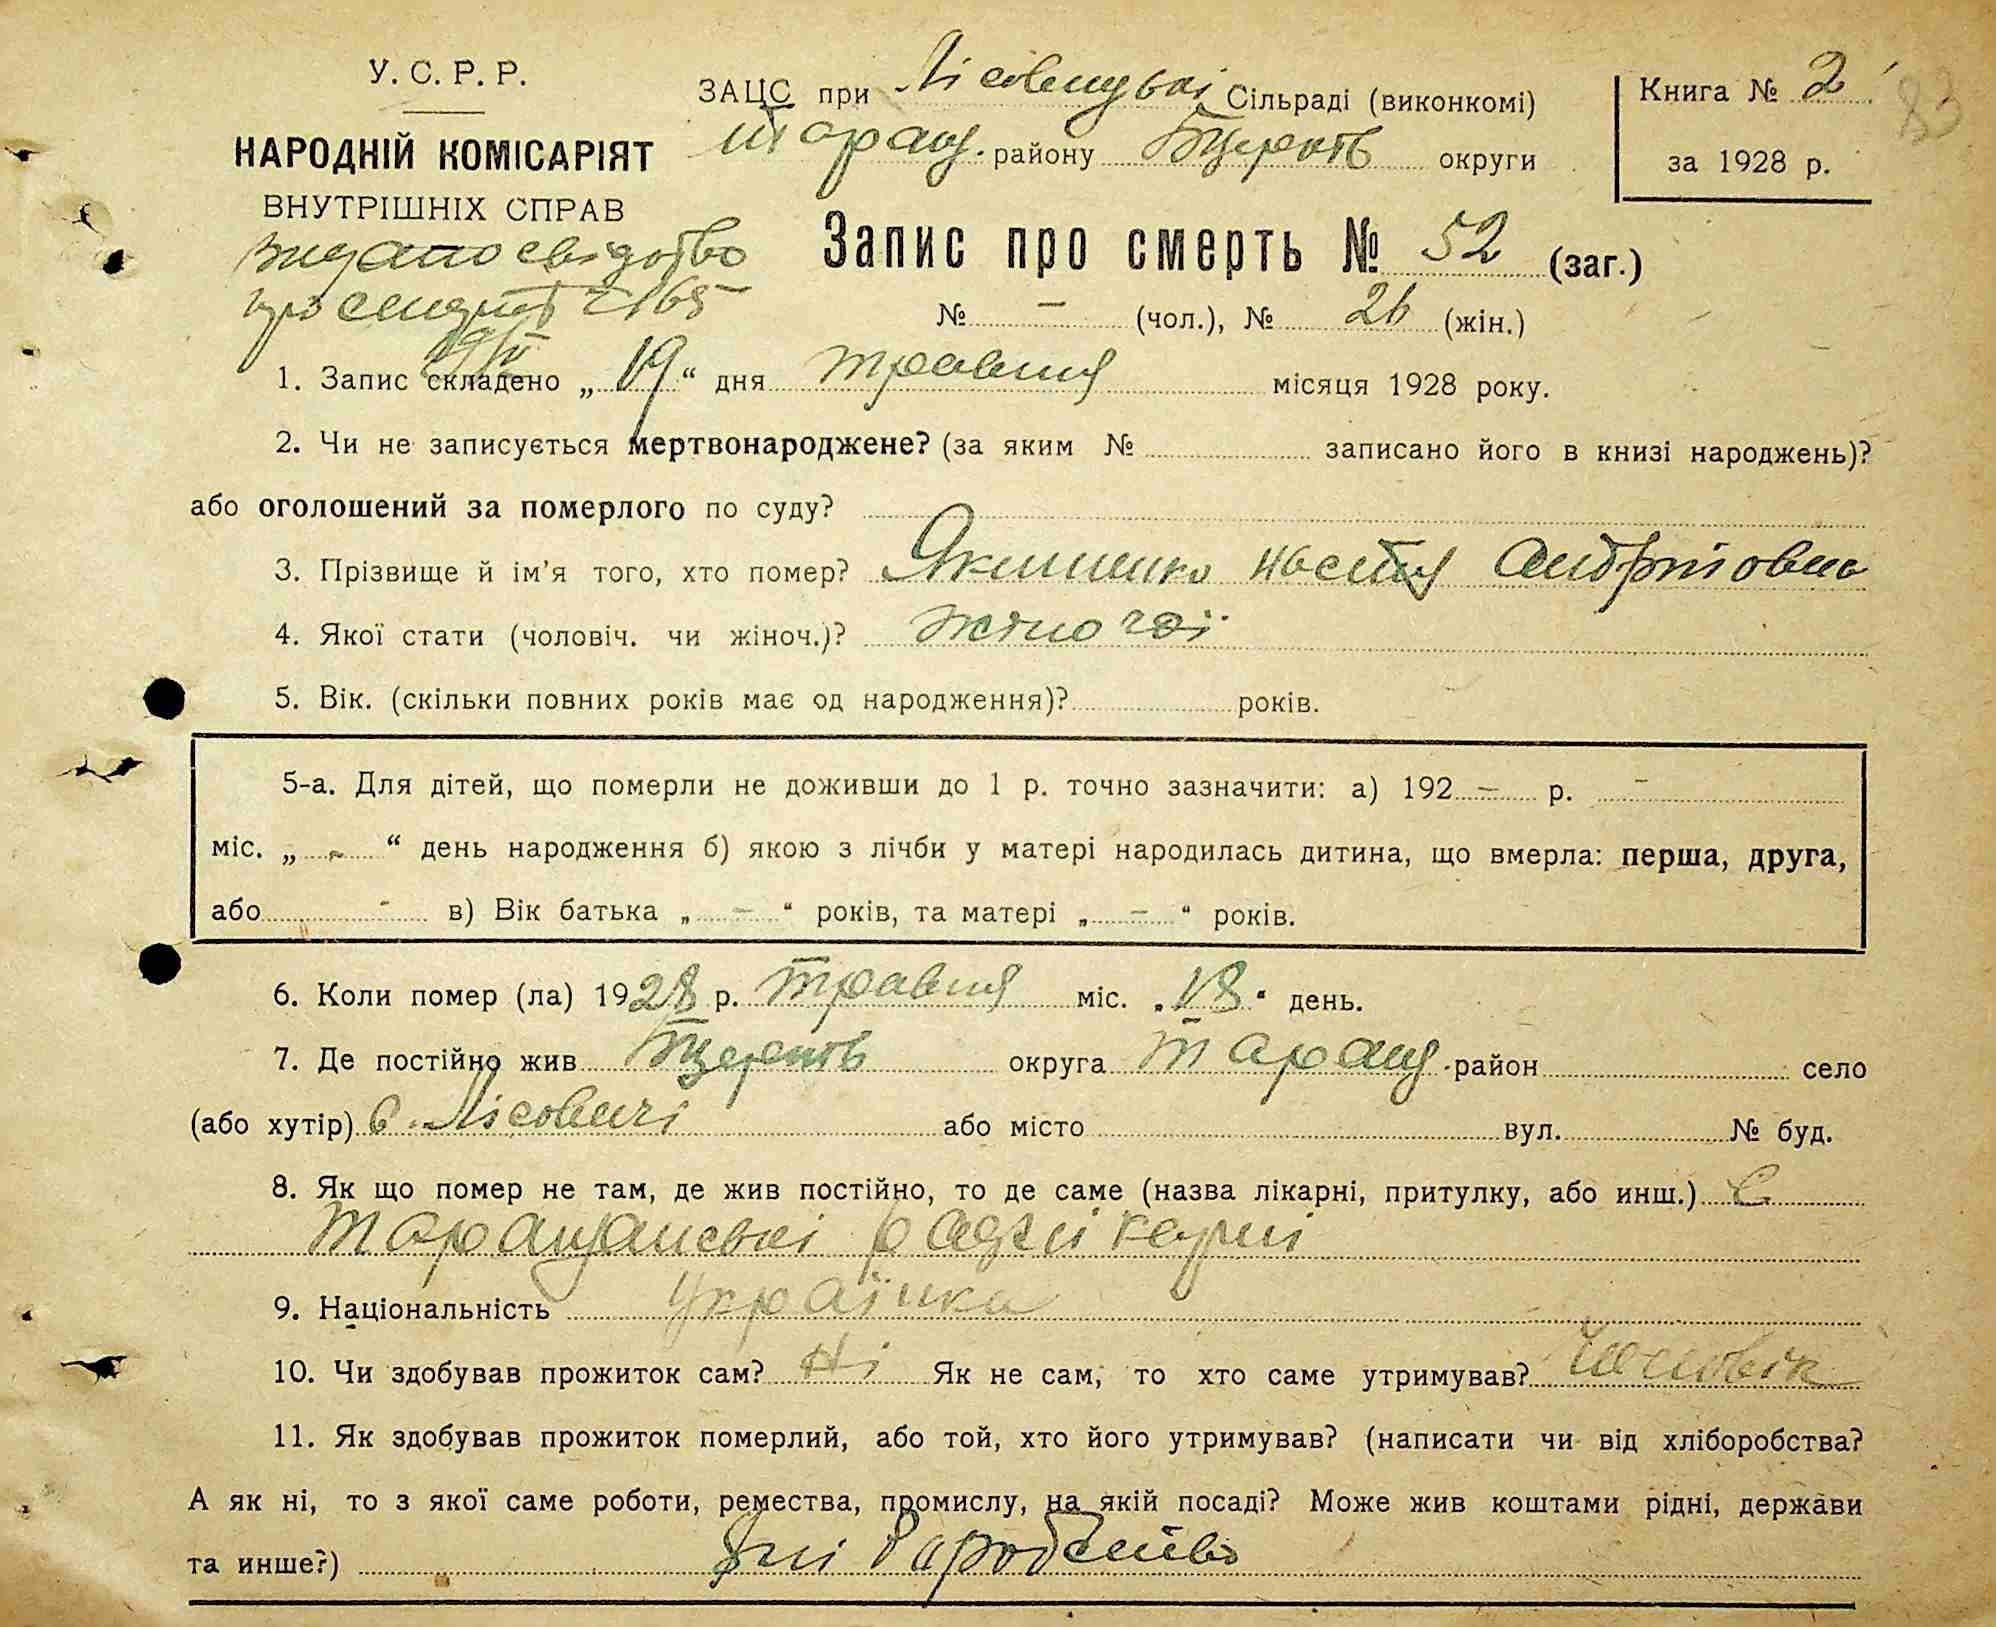 У. С. Р. Р.
НАРОДНІЙ КОМІСАРІЯТ
ВНУТРІШНІХ СПРАВ
видано свідотво
про смерть № 165
19/V
ЗАЦС при Лісовицькі Сільраді (виконкомі)
Таращ. району Бцерків округи
Книга № 2
за 1928 р.
83
Запис про смерть № 52 (заг.)
№ – (чол.), № 26 (жін.)
1. Запис складено „19“ дня травня місяця 1928 року.
2. Чи не записується мертвонароджене? (за яким № записано його в книзі народжень)?
або оголошений за померлого по суду?
3. Прізвище й ім'я того, хто помер? Якименко Настя Андріiовна
4. Якої стати (чоловіч. чи жіноч.)? жіночої
5. Вік. (скільки повних років має од народження)? років.
5-а. Для дітей, що померли не доживши до 1 р. точно зазначити: а) 192 – р. –
міс. „ - “ день народження б) якою з лічби у матері народилась дитина, що вмерла: перша, друга,
або - в) Вік батька „ – “ років, та матері „ – “ років.
6. Коли помер (ла) 1928 р. травня міс. „18“ день.
7. Де постійно жив Бцерків округа Таращ. район село
(або хутір) с. Лісовичі або місто вул. № буд.
8. Як що помер не там, де жив постійно, то де саме (назва лікарні, притулку, або инш.) С
Таращанські радлікарні
9. Національність Українка
10. Чи здобував прожиток сам? Ні Як не сам, то хто саме утримував? Чоловік
11. Як здобував прожиток померлий, або той, хто його утримував? (написати чи від хліборобства?
А як ні, то з якої саме роботи, ремества, промислу, на якій посаді? Може жив коштами рідні, держави
та инше?) Хліборобство